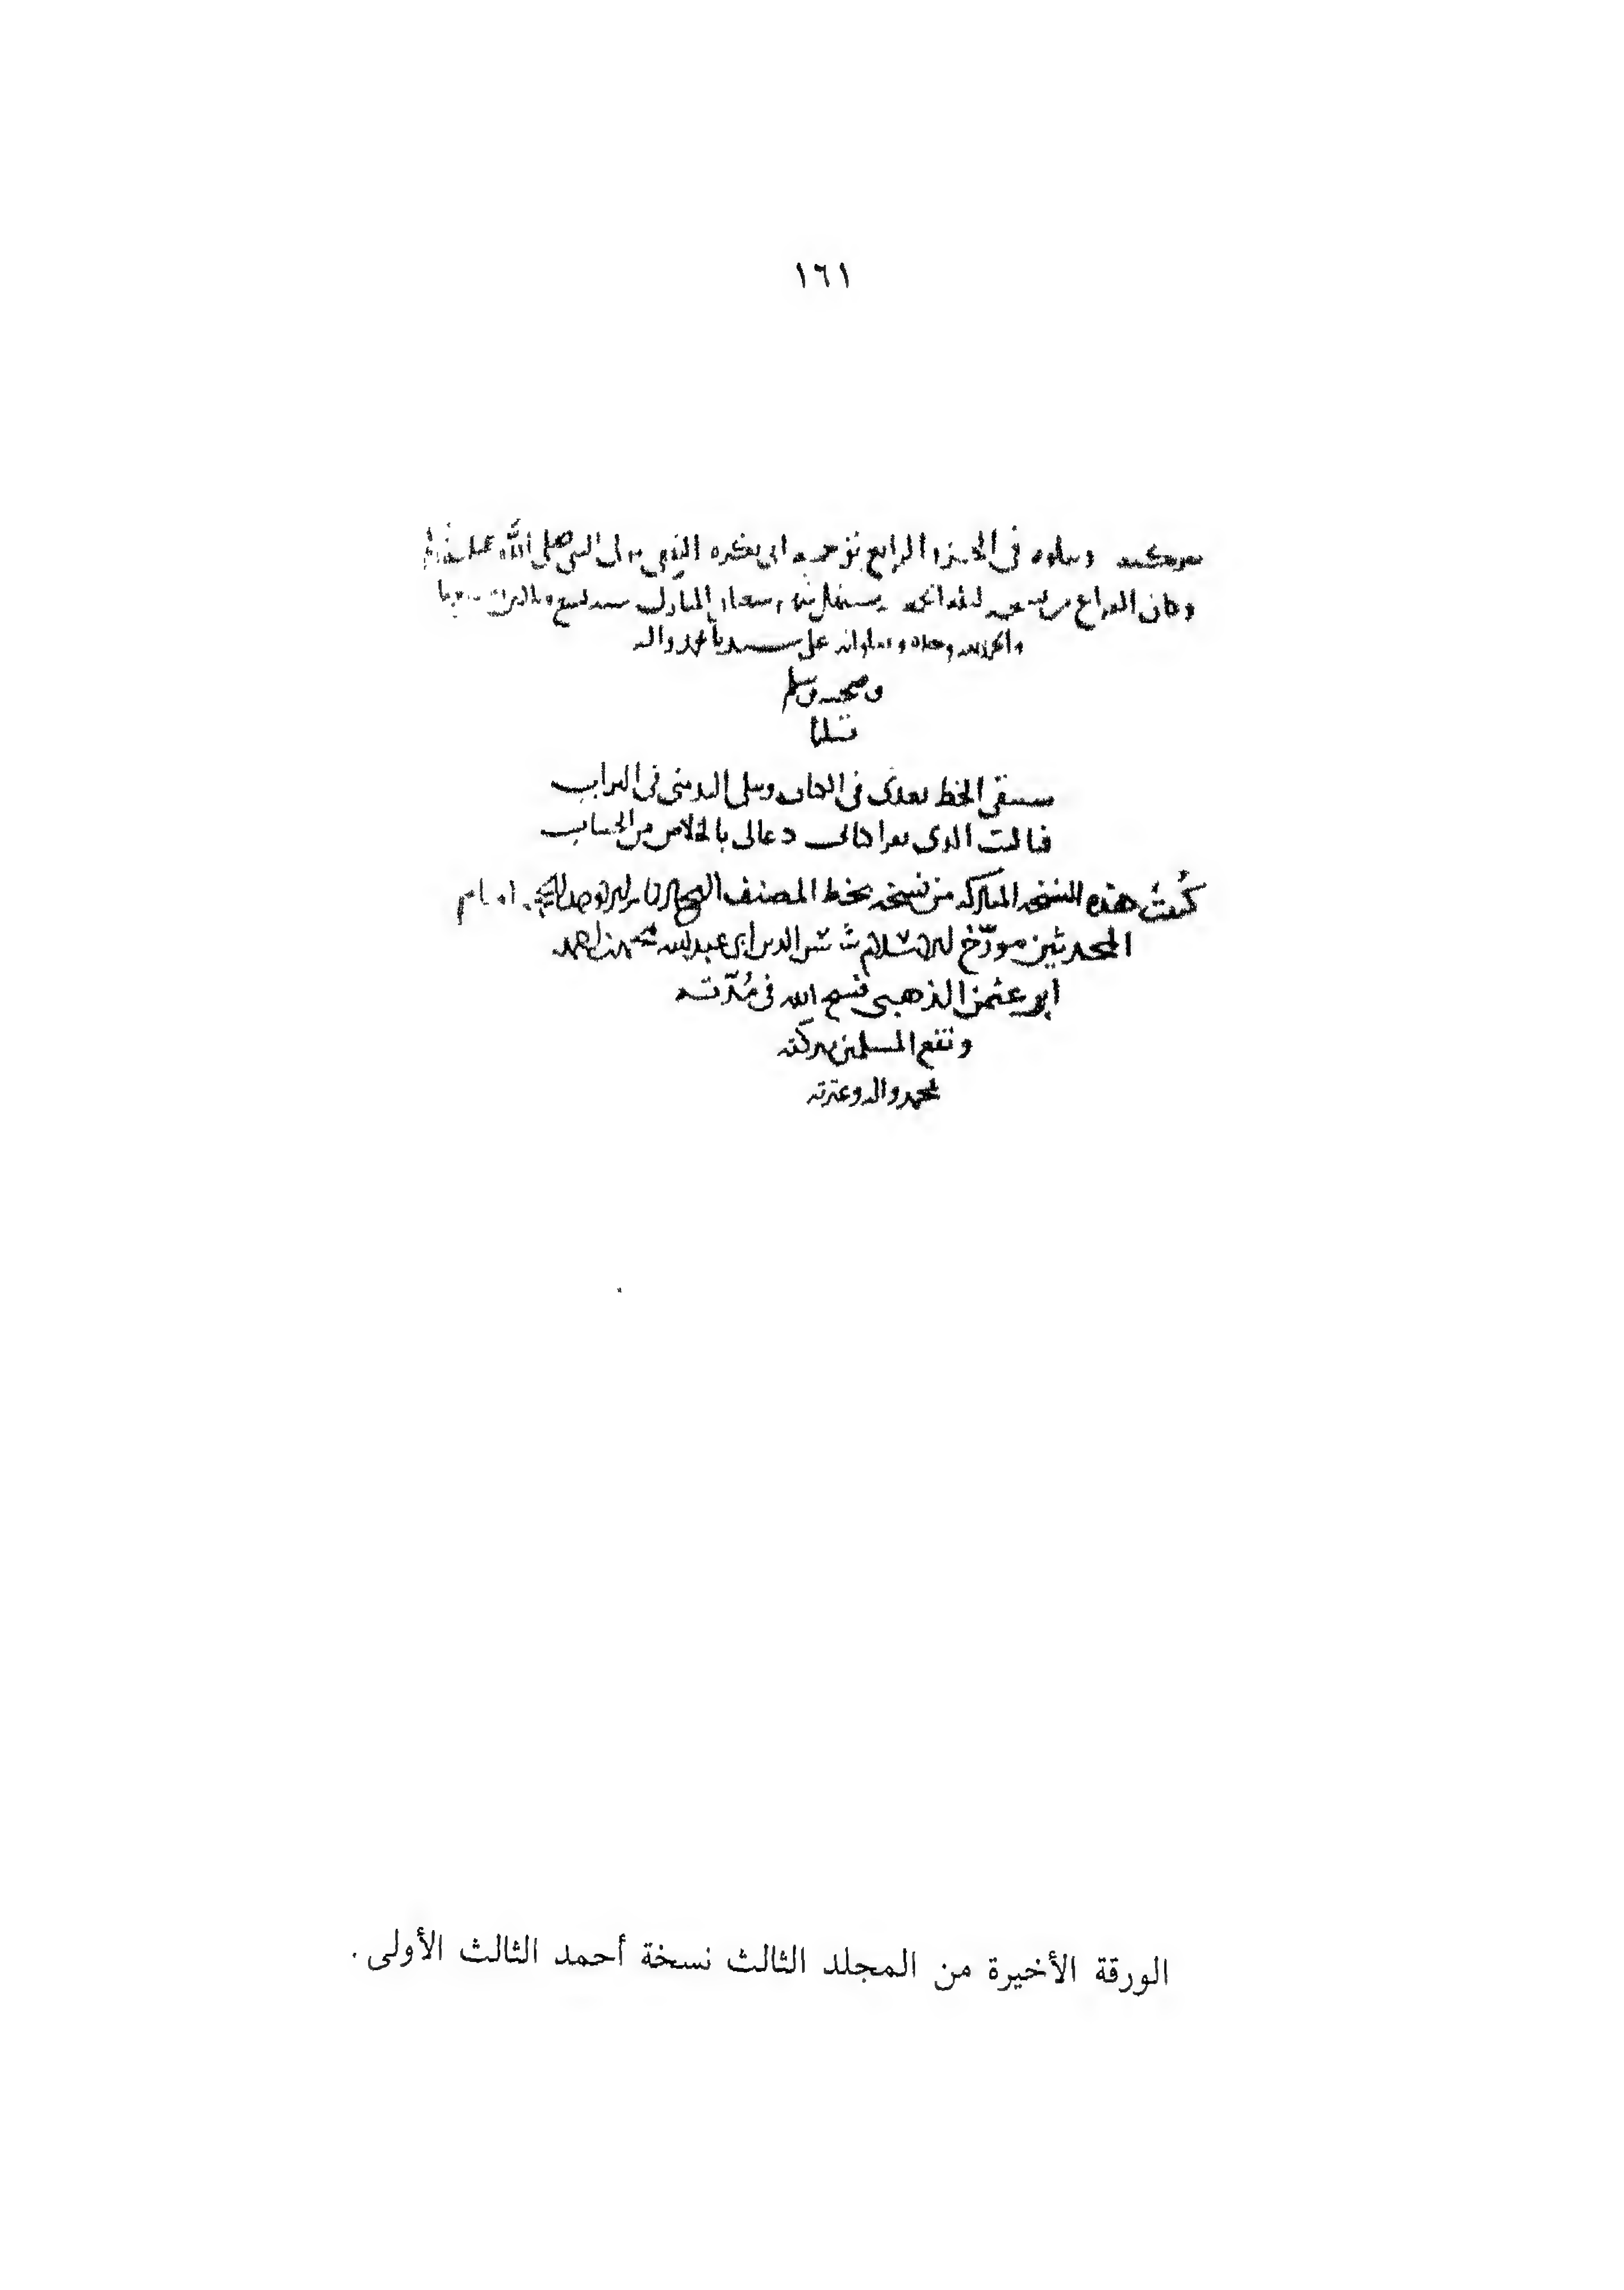 ١٦١
في الجزء الرابع ابي بكره الثقفي مولى النبي صلى الله عليه
وكان الفراغ من شعبان المبارك سنه تسع وثلاثين
والحمد لله وحده وصلواته على سيدنا محمد واله
وصحبه وسلم
تسليما
سيبقى الخط بعدي في الكتاب وسلى اليد مني في التراب
فيا ليت الذي يقرا كتابي دعا لي بالخلاص من الحساب
كُتبت هذه النسخه المباركه من نسخه بخط المصنف امام
المحدثين مورّخ الاسلام شمس الدين ابي عبد الله محمد بن احمد
ابن عثمن الذهبي فسح الله في مُدّته
ونفع المسلمين ببركته
بمحمد واله وعترته
الورقة الأخيرة من المجلد الثالث نسخة أحمد الثالث الأولى .